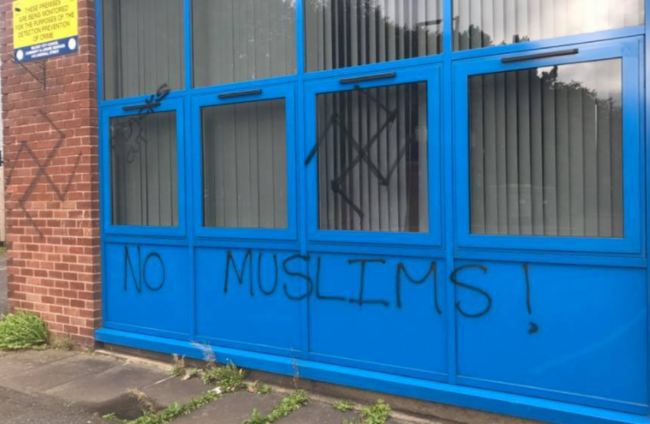 THESE PREMISES
ARE BEING MONITORED
FOR THE PURPOSES OF THE
DETECTION PREVENTION
OF CRIME
NO MUSLIMS!